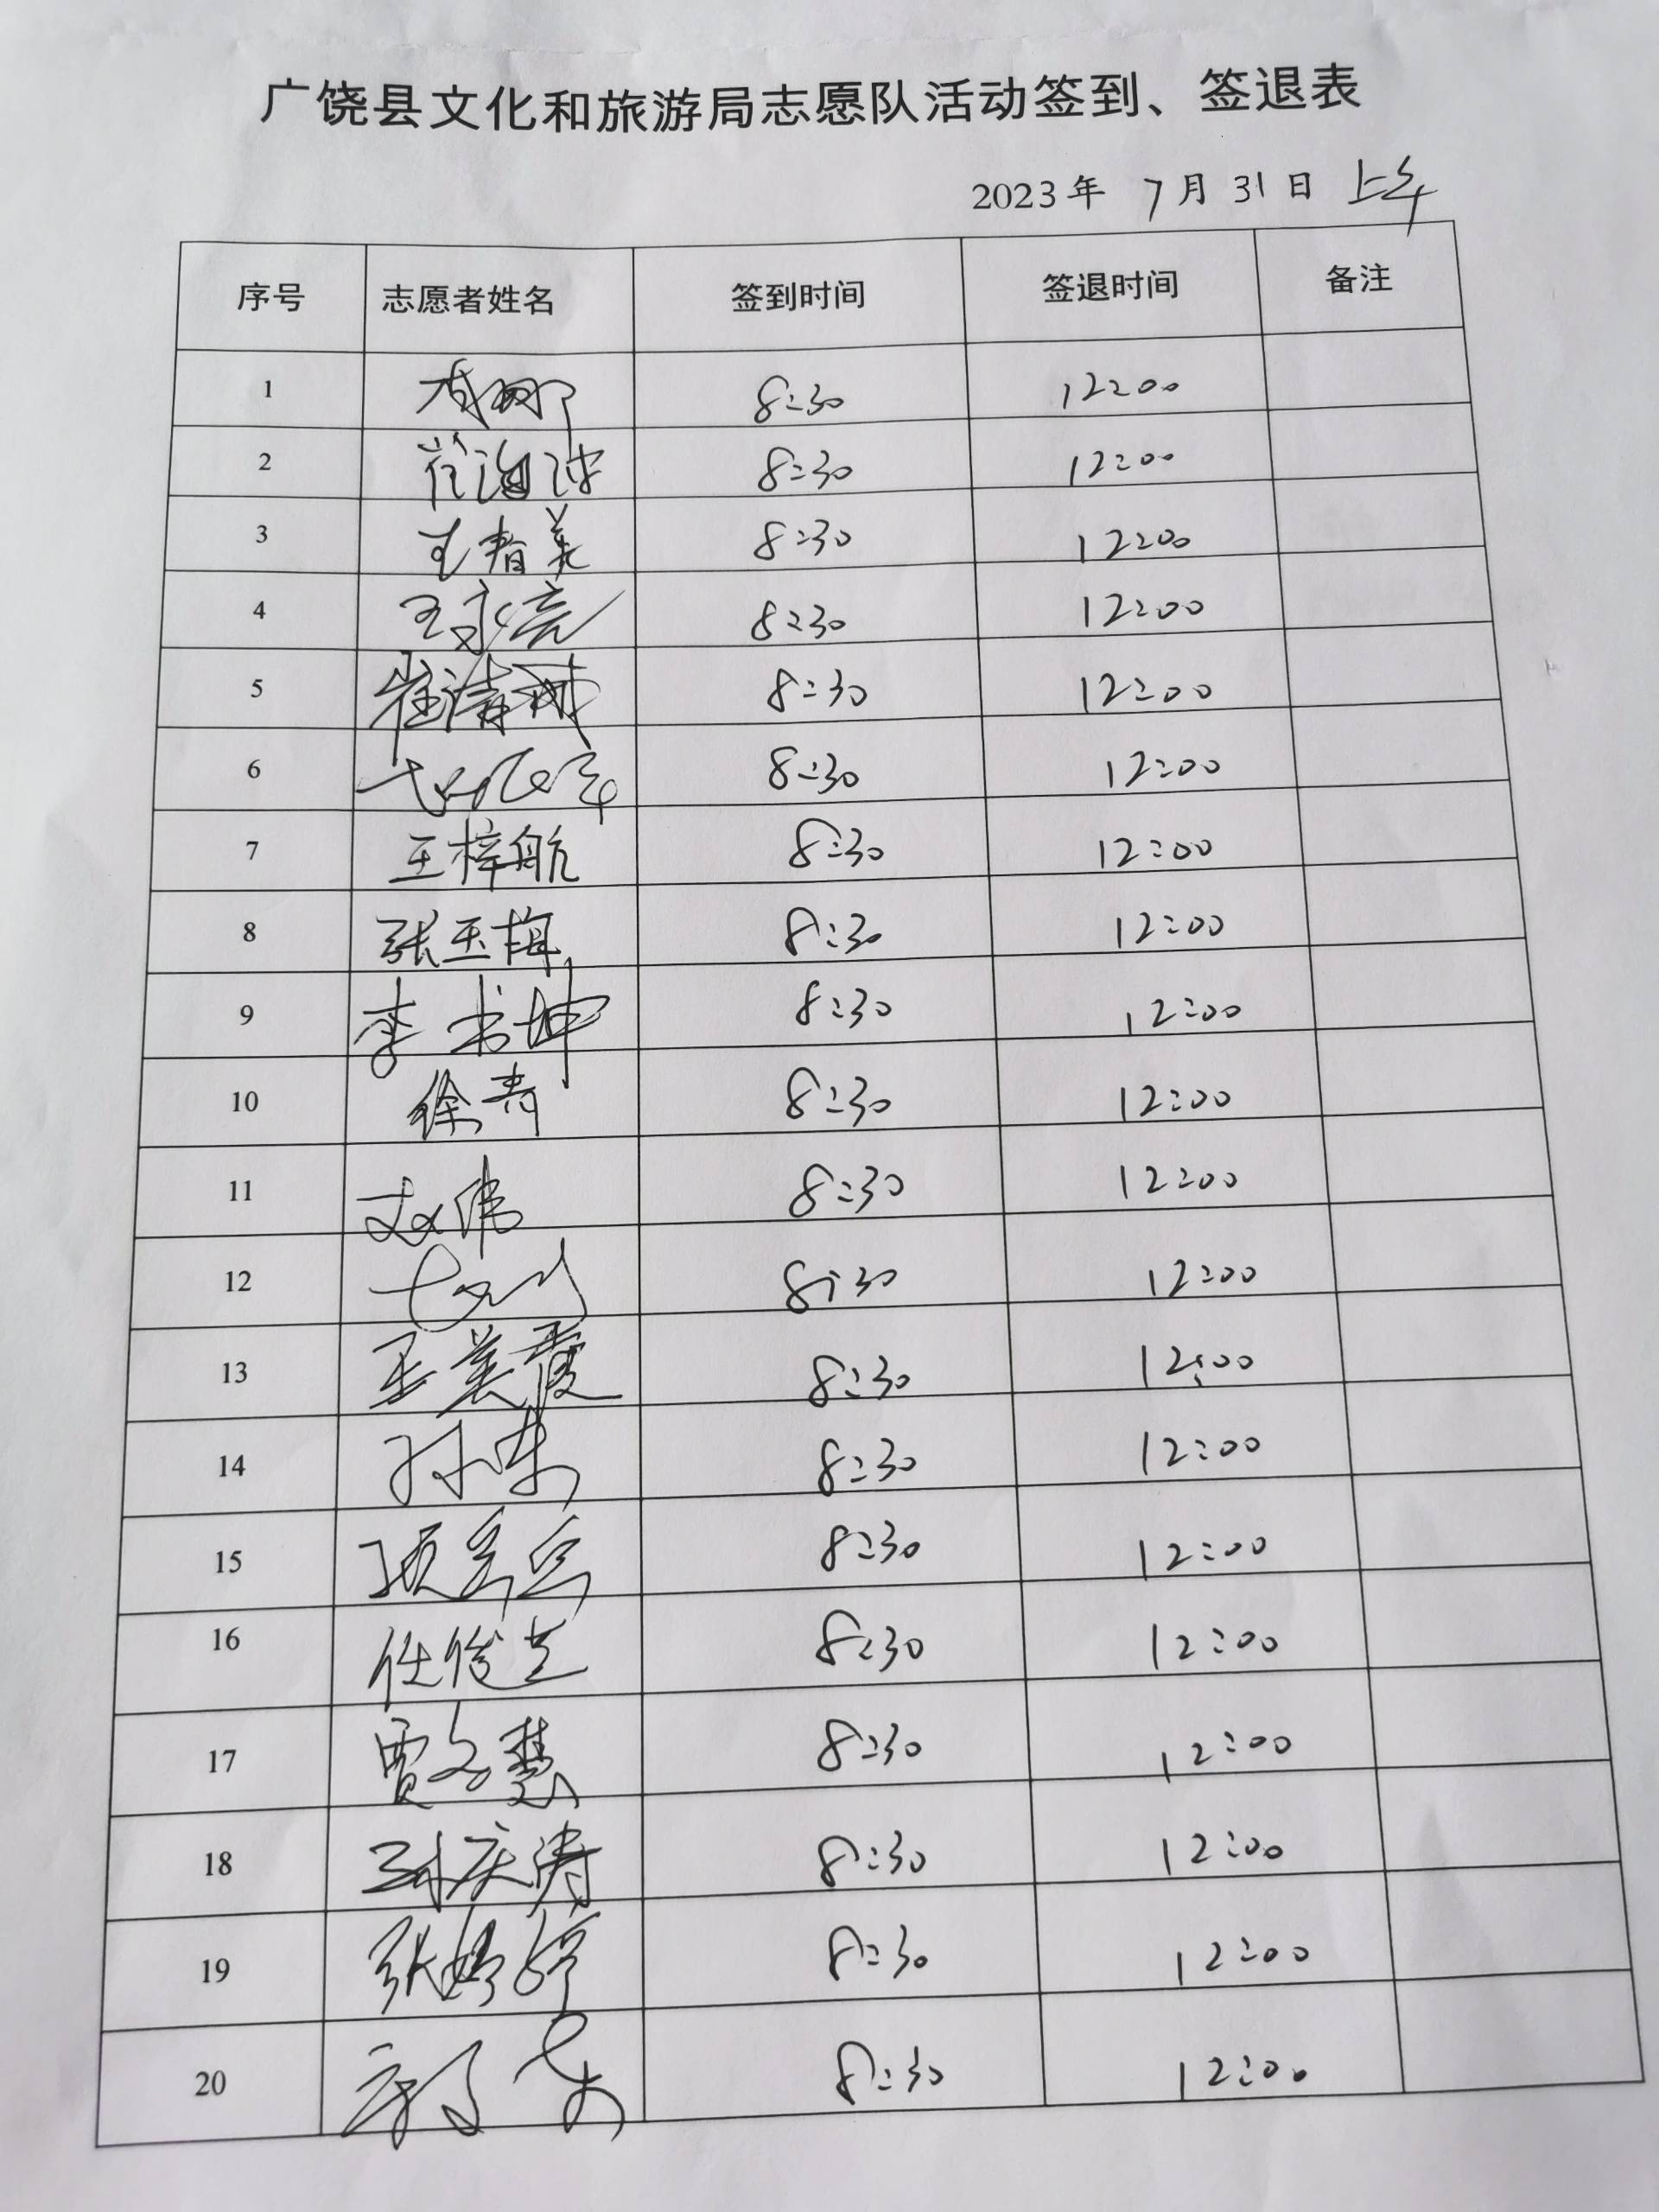 广饶县文化和旅游局志愿队活动签到、签退表
2023年 7月 31日 上午
序号 志愿者姓名 签到时间 签退时间 备注
1 8:30 12:00
2 崔海 8:30 12:00
3 王春美 8:30 12:00
4 王永亮 8:30 12:00
5 崔清 8:30 12:00
6 8:30 12:00
7 王梓航 8:30 12:00
8 张玉梅 8:30 12:00
9 李书坤 8:30 12:00
10 徐青 8:30 12:00
11 伟 8:30 12:00
12 8:30 12:00
13 王美霞 8:30 12:00
14 孙 8:30 12:00
15 8:30 12:00
16 任俊兰 8:30 12:00
17 贾文慧 8:30 12:00
18 庆涛 8:30 12:00
19 张婷婷 8:30 12:00
20 8:30 12:00